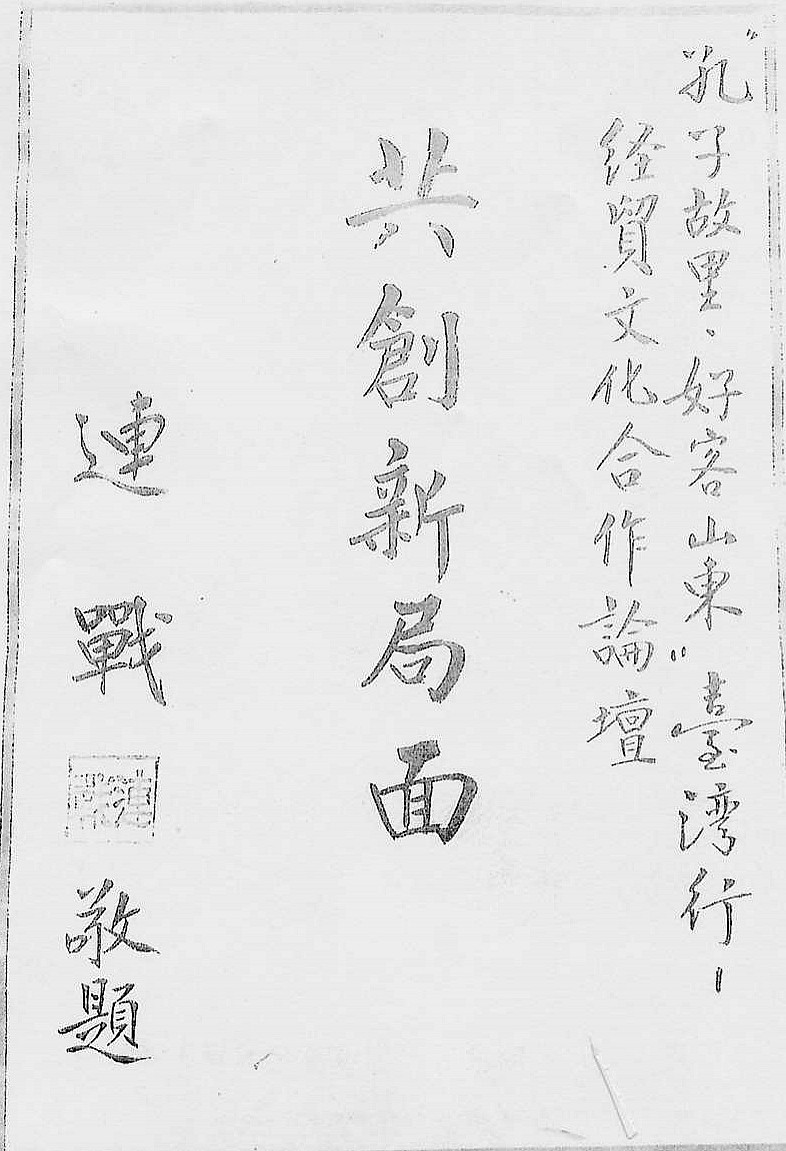 "孔子故里、好客山東"臺湾行—
経貿文化合作論壇
共創新局面
連戰
敬題